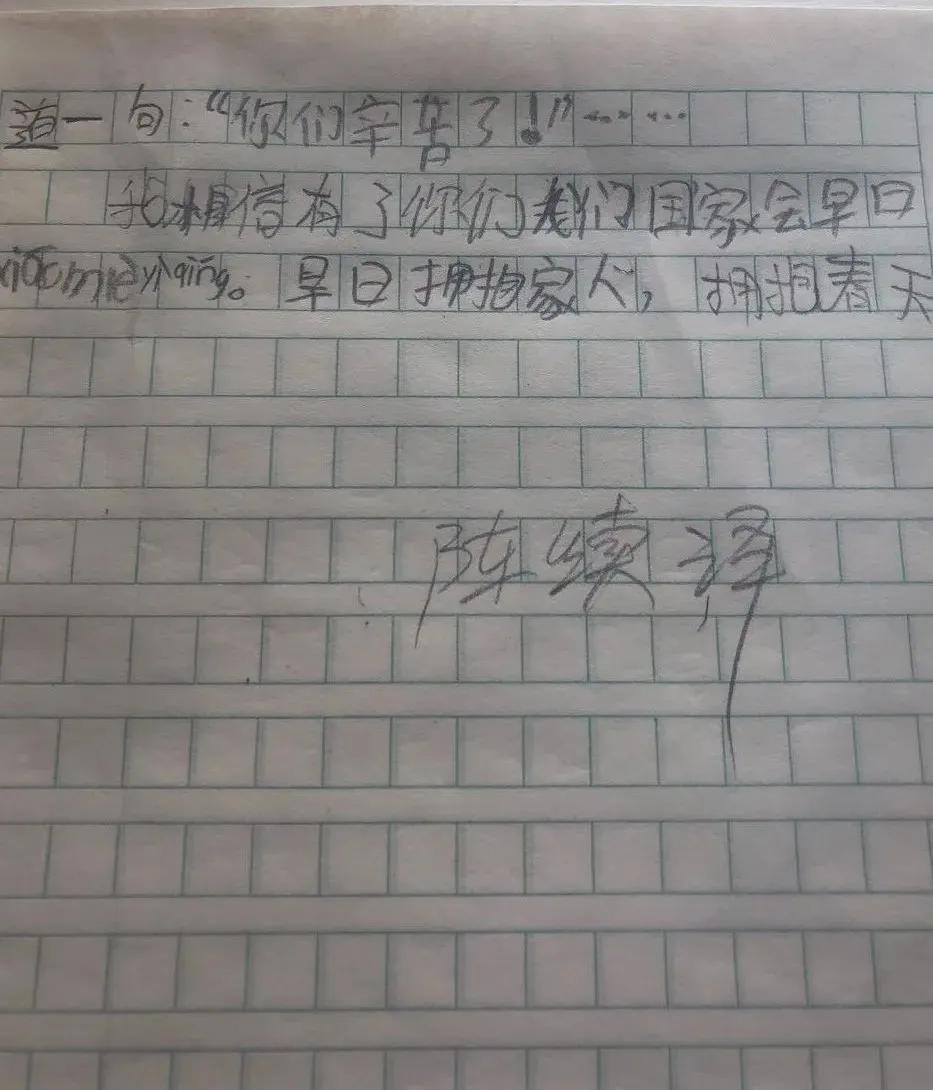 道一句：“你们辛苦了！”……
我相信有了你们我们国家会早日
xiāomièyìqíng。早日拥抱家人，拥抱春天
陈续译